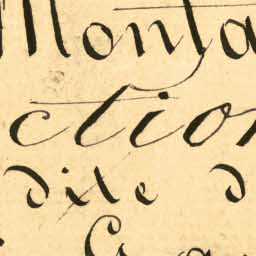 Monta
ction
dite d